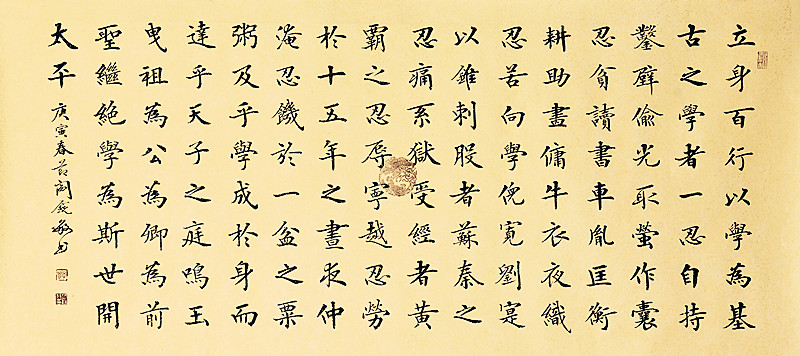 立身百行以學為基
古之學者一忍自持
鑿壁偷光取螢作囊
忍貧讀書車胤匡衡
耕助盡傭牛衣夜織
忍苦向學倪寬劉寔
以錐刺股者蘇秦之
忍痛系獄受經者黃
霸之忍辱寧越忍勞
於十五年之晝夜仲
淹忍饑於一盆之粟
粥及乎學成於身而
達乎天子之庭鳴玉
曳祖為公為卿為前
聖繼絕學為斯世開
太平
庚寅春